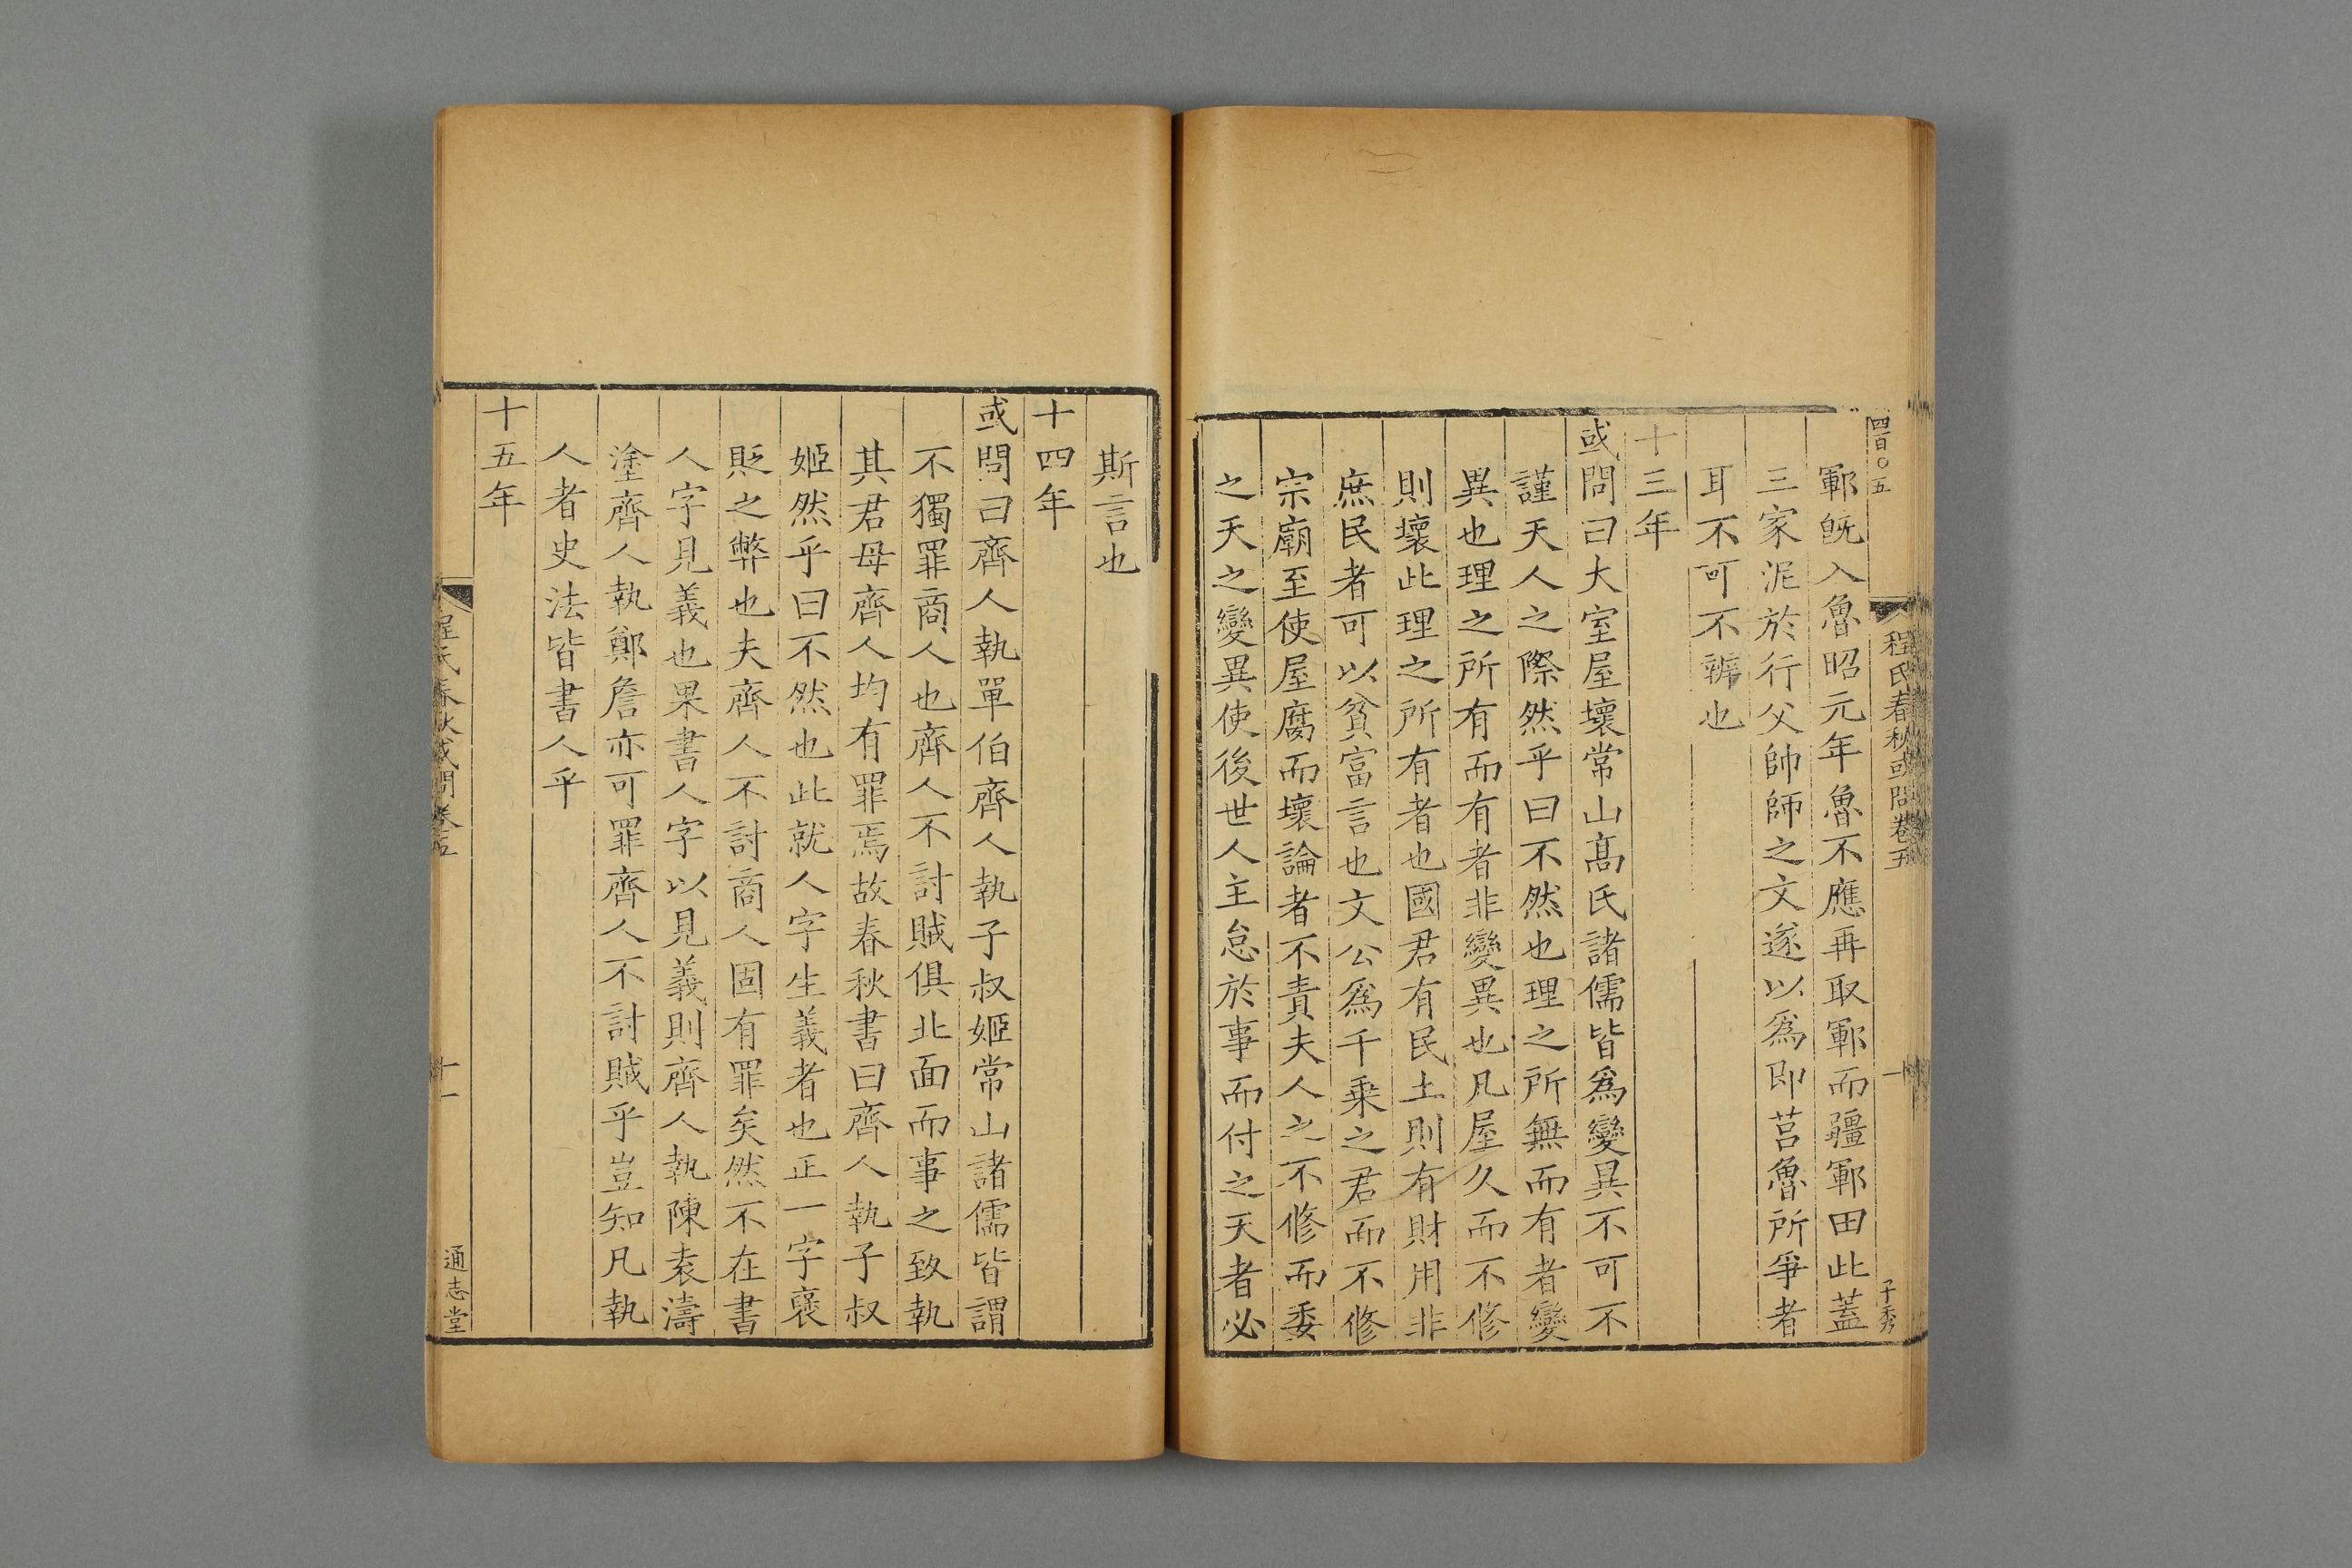 四百〇五
程氏春秋或問卷五
十
子秀
鄆旣入魯昭元年魯不應再取鄆而疆鄆田此蓋
三家泥於行父帥師之文遂以爲即莒魯所爭者
耳不可不辨也
十三年
或問曰大室屋壞常山髙氏諸儒皆爲變異不可不
謹天人之際然乎曰不然也理之所無而有者變
異也理之所有而有者非變異也凡屋久而不修
則壞此理之所有者也國君有民土則有財用非
庶民者可以貧富言也文公爲千乗之君而不修
宗廟至使屋腐而壞論者不責夫人之不修而委
之天之變異使後世人主怠於事而付之天者必
斯言也
十四年
或問曰齊人執單伯齊人執子叔姬常山諸儒皆謂
不獨罪商人也齊人不討賊俱北面而事之致執
其君母齊人均有罪焉故春秋書曰齊人執子叔
姬然乎曰不然也此就人字生義者也正一字褒
貶之弊也夫齊人不討商人固有罪矣然不在書
人字見義也果書人字以見義則齊人執陳袁濤
塗齊人執鄭詹亦可罪齊人不討賊乎豈知凡執
人者史法皆書人乎
十五年
程氏春秋或問卷五
十一
通志堂